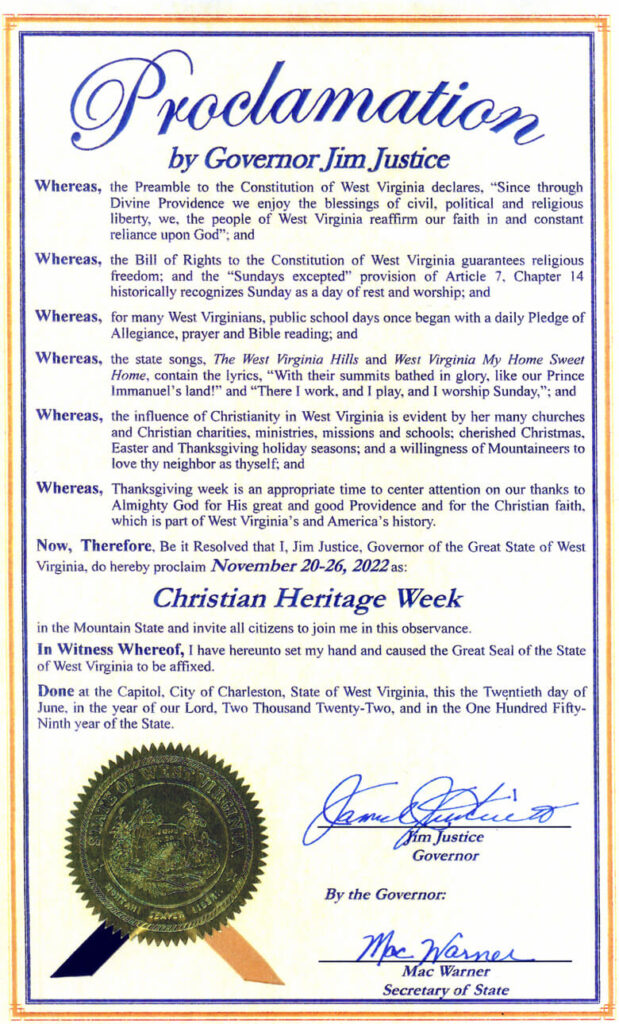 Proclamation
by Governor Jim Justice
Whereas, the Preamble to the Constitution of West Virginia declares, “Since through
Divine Providence we enjoy the blessings of civil, political and religious
liberty, we, the people of West Virginia reaffirm our faith in and constant
reliance upon God”; and
Whereas, the Bill of Rights to the Constitution of West Virginia guarantees religious
freedom; and the “Sundays excepted” provision of Article 7, Chapter 14
historically recognizes Sunday as a day of rest and worship; and
Whereas, for many West Virginians, public school days once began with a daily Pledge of
Allegiance, prayer and Bible reading; and
Whereas, the state songs, The West Virginia Hills and West Virginia My Home Sweet
Home, contain the lyrics, “With their summits bathed in glory, like our Prince
Immanuel’s land!” and “There I work, and I play, and I worship Sunday,”; and
Whereas, the influence of Christianity in West Virginia is evident by her many churches
and Christian charities, ministries, missions and schools; cherished Christmas,
Easter and Thanksgiving holiday seasons; and a willingness of Mountaineers to
love thy neighbor as thyself; and
Whereas, Thanksgiving week is an appropriate time to center attention on our thanks to
Almighty God for His great and good Providence and for the Christian faith,
which is part of West Virginia’s and America’s history.
Now, Therefore, Be it Resolved that I, Jim Justice, Governor of the Great State of West
Virginia, do hereby proclaim November 20-26, 2022 as:
Christian Heritage Week
in the Mountain State and invite all citizens to join me in this observance.
In Witness Whereof, I have hereunto set my hand and caused the Great Seal of the State
of West Virginia to be affixed.
Done at the Capitol, City of Charleston, State of West Virginia, this the Twentieth day of
June, in the year of our Lord, Two Thousand Twenty-Two, and in the One Hundred Fifty-
Ninth year of the State.
STATE OF WEST VIRGINIA
MONTANI SEMPER LIBERI
James C Justice II
Jim Justice
Governor
By the Governor:
Mac Warner
Mac Warner
Secretary of State